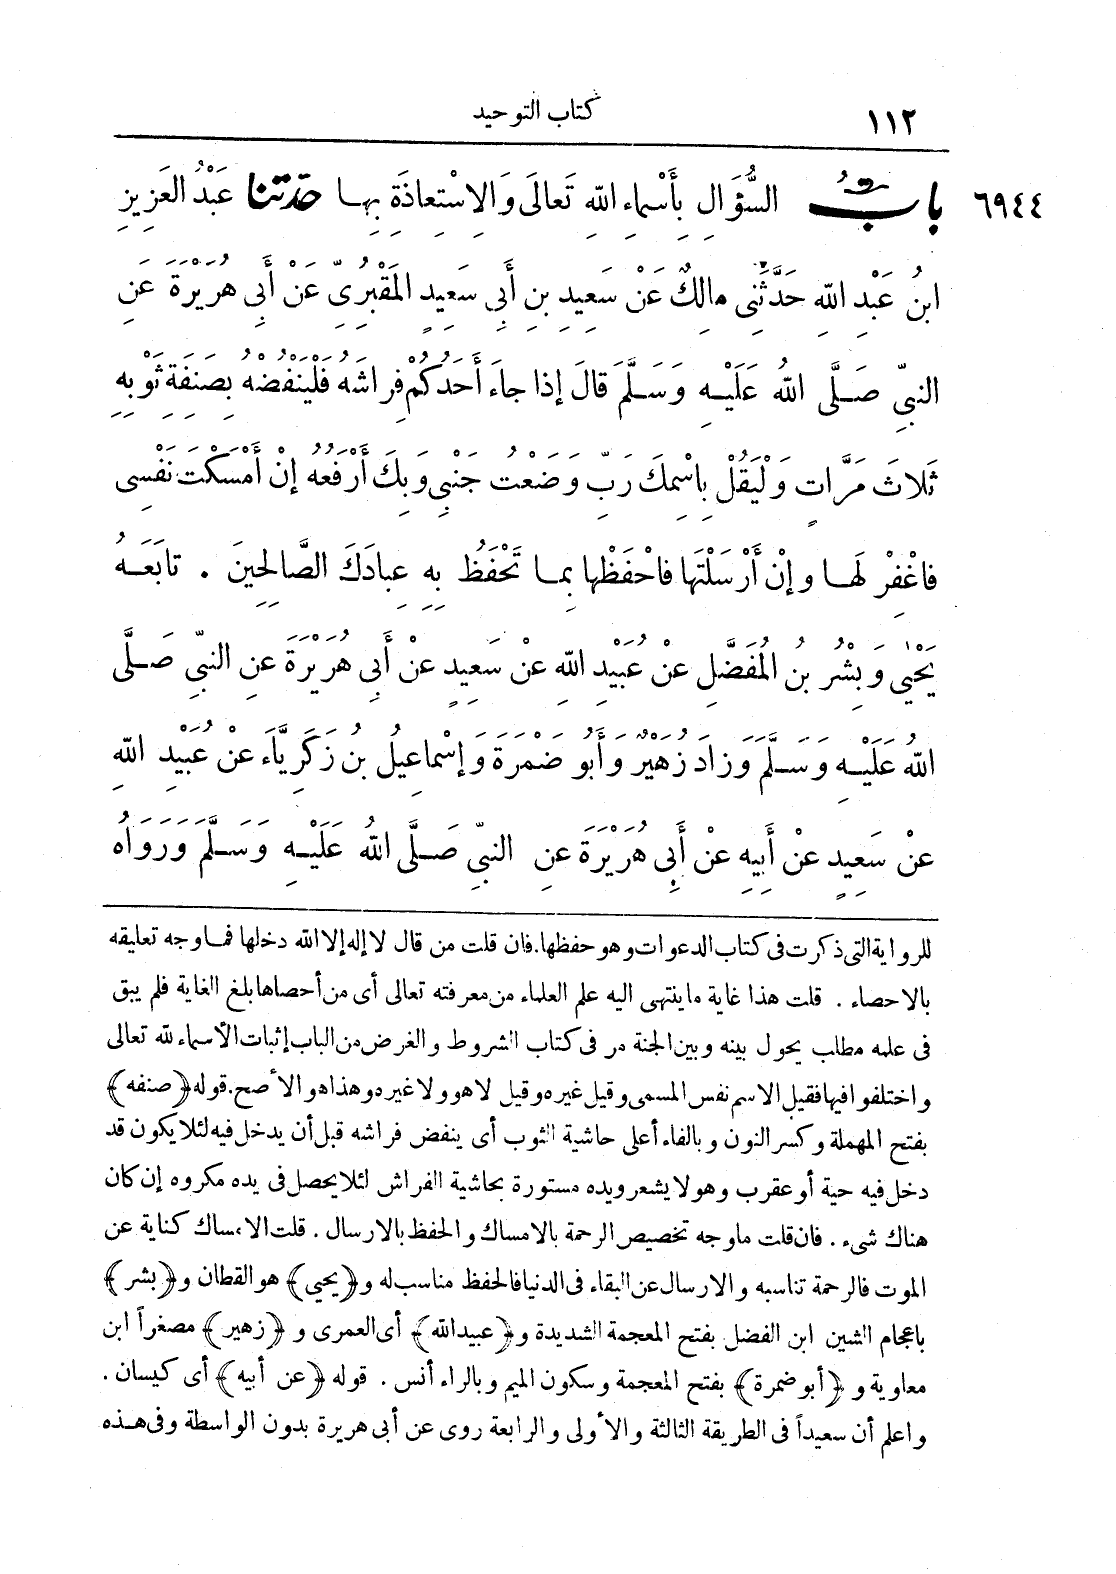 ١١٢
كتاب التوحيد
٦٩٤٤
بابُ السُّؤَالِ بِأَسْمَاءِ اللهِ تَعَالَى وَالِاسْتِعاذَةِ بِها حَدَّثَنَا عَبْدُ العَزِيزِ
ابنُ عَبْدِ اللهِ حَدَّثَنِي مالِكٌ عَنْ سَعِيدِ بنِ أَبِي سَعِيدٍ المَقْبُرِيِّ عَنْ أَبِي هُرَيْرَةَ عَنِ
النبيِّ صَلَّى اللهُ عَلَيْهِ وَسَلَّمَ قالَ إذا جاءَ أَحَدُكُمْ فِراشَهُ فَلْيَنْفُضْهُ بِصَنِفَةِ ثَوْبِهِ
ثَلاثَ مَرَّاتٍ وَلْيَقُلْ بِاسْمِكَ رَبِّ وَضَعْتُ جَنْبِي وَبِكَ أَرْفَعُهُ إنْ أَمْسَكْتَ نَفْسِى
فاغْفِرْ لَها وإنْ أَرْسَلْتَها فاحْفَظْها بِما تَحْفَظُ بِهِ عِبادَكَ الصَّالِحِينَ . تابَعَهُ
يَحْيَى وَبِشْرُ بنُ المُفَضَّلِ عنْ عُبَيْدِ اللهِ عنْ سَعِيدٍ عنْ أَبِي هُرَيْرَةَ عنِ النبيِّ صَلَّى
اللهُ عَلَيْهِ وَسَلَّمَ وَزادَ زُهَيْرٌ وَأَبُو ضَمْرَةَ وَإسْماعِيلُ بنُ زَكَرِيَّاءَ عَنْ عُبَيْدِ اللهِ
عنْ سَعِيدٍ عنْ أَبِيهِ عنْ أَبِي هُرَيْرَةَ عنِ النبيِّ صَلَّى اللهُ عَلَيْهِ وَسَلَّمَ وَرَوَاهُ
للرواية التى ذكرت فى كتاب الدعوات وهو حفظها. فان قلت من قال لا إله إلا الله دخلها فما وجه تعليقه
بالاحصاء . قلت هذا غاية ما ينتهى اليه علم العلماء من معرفته تعالى أى من أحصاها بلغ الغاية فلم يبق
فى علمه مطلب يحول بينه وبين الجنة مر فى كتاب الشروط والغرض من الباب إثبات الأسماء لله تعالى
واختلفوا فيها فقيل الاسم نفس المسمى وقيل غيره وقيل لا هو ولا غيره وهذا هو الأصح. قوله ﴿صنفه﴾
بفتح المهملة وكسر النون وبالفاء أعلى حاشية الثوب أى ينفض فراشه قبل أن يدخل فيه لئلا يكون قد
دخل فيه حية أو عقرب وهو لا يشعر ويده مستورة بحاشية الفراش لئلا يحصل فى يده مكروه إن كان
هناك شىء . فان قلت ما وجه تخصيص الرحمة بالامساك والحفظ بالارسال . قلت الامساك كناية عن
الموت فالرحمة تناسبه والارسال عن البقاء فى الدنيا فالحفظ مناسب له و﴿يحيى﴾ هو القطان و﴿بشر﴾
باعجام الشين ابن الفضل بفتح المعجمة الشديدة و﴿عبيد الله﴾ أى العمرى و ﴿زهير﴾ مصغراً ابن
معاوية و ﴿أبو ضمرة﴾ بفتح المعجمة وسكون الميم وبالراء أنس . قوله ﴿عن أبيه﴾ أى كيسان .
واعلم أن سعيداً فى الطريقة الثالثة والأولى والرابعة روى عن أبى هريرة بدون الواسطة وفى هذه